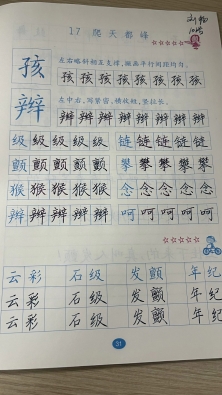 17 爬天都峰
孩
左右略斜相互支撑,撇画平行间距均匀。
孩 孩 孩 孩 孩 孩 孩 孩
辫
左中右,写紧密,横收短,竖拉长。
辫 辫 辫 辫 辫 辫 辫 辫
级 级 级 级 级 链 链 链 链 链
颤 颤 颤 颤 颤 攀 攀 攀 攀 攀
猴 猴 猴 猴 猴 念 念 念 念 念
辫 辫 辫 辫 辫 呵 呵 呵 呵 呵
云彩 石级 发颤 年纪
云彩 石级 发颤 年纪
云彩 石级 发颤 年纪
31